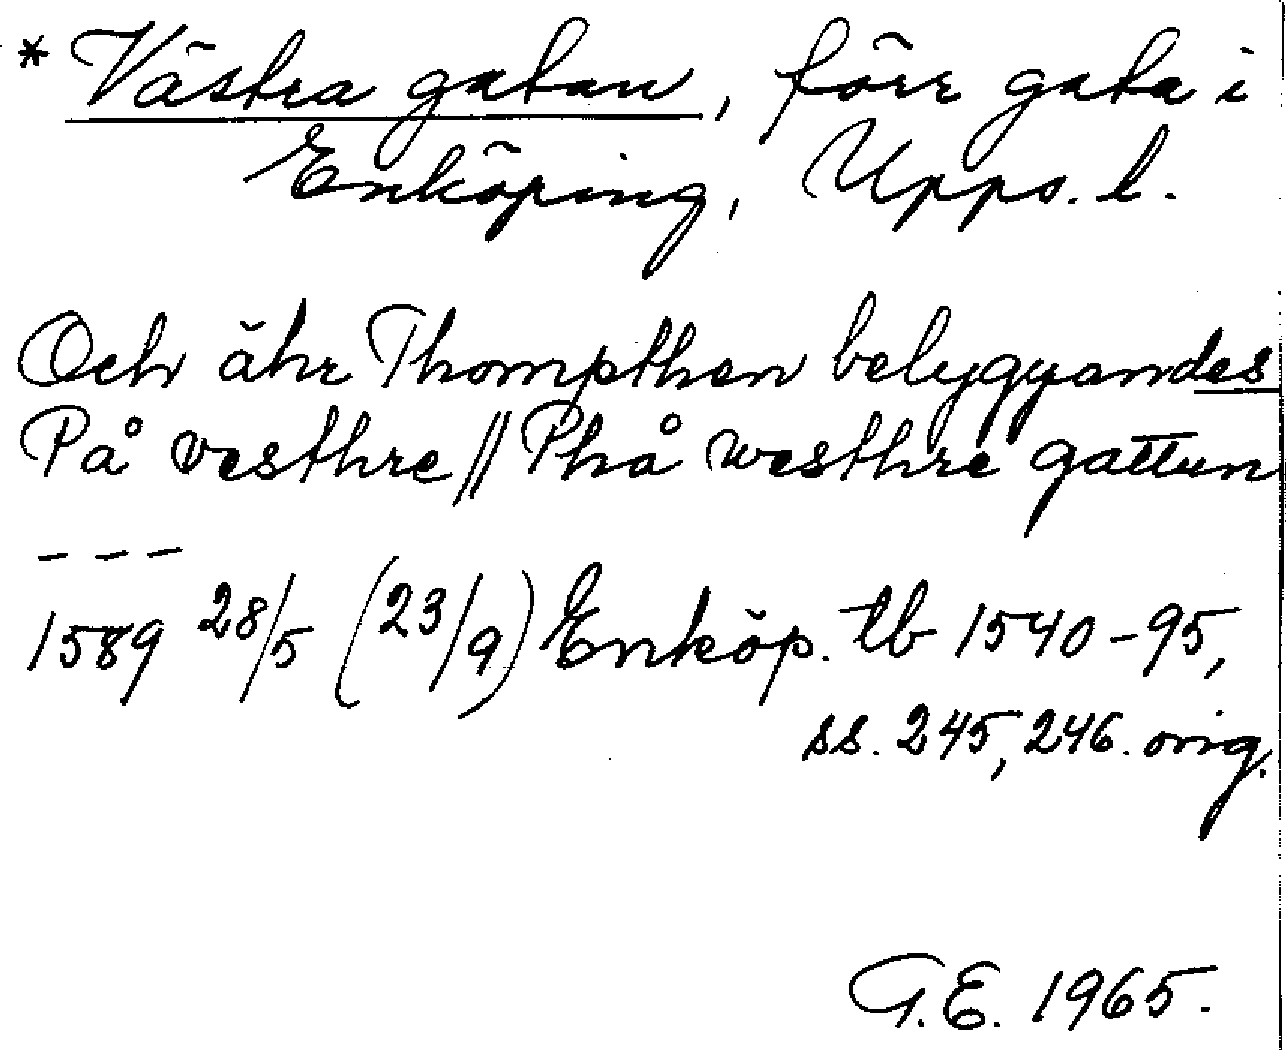 * Västra gatan, förr gata i
Enköping, Upps. l.
Och ähr Thompthen belygyandes
På vesthre // Phå westhre gattun
– – –
1589 28/5 (23/9) Enköp. tb 1540–95,
ss. 245, 246. orig.
G.E. 1965.